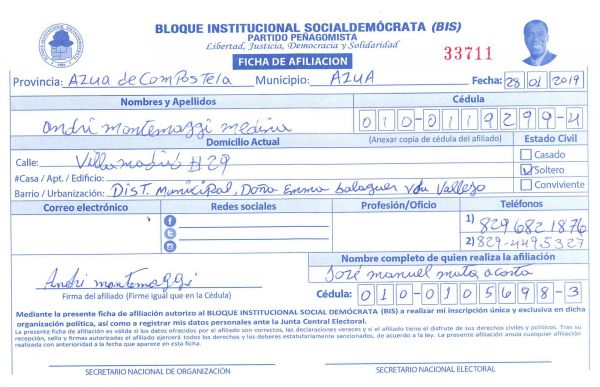 BLOQUE INSTITUCIONAL SOCIALDEMÓCRATA (BIS)
PARTIDO PEÑAGOMISTA
Libertad, Justicia, Democracia y Solidaridad
33711
FICHA DE AFILIACION
Provincia: AZUA de Compostela Municipio: AZUA Fecha: 28 01 2019
Nombres y Apellidos Cédula
Andri montemaggi medina 010-0119299-4
Domicilio Actual (Anexar copia de cédula del afiliado) Estado Civil
Calle: Villa #29 Casado
#Casa / Apt. / Edificio: Soltero
Barrio / Urbanización: Dist. Municipal, Doña Emma balaguer Vallejo Conviviente
Correo electrónico Redes sociales Profesión/Oficio Teléfonos
1) 8296821876
2) 829-449-5327
Nombre completo de quien realiza la afiliación
Andri montemaggi José manuel acosta
Firma del afiliado (Firme igual que en la Cédula) Cédula: 010-0105698-3
Mediante la presente ficha de afiliación autorizo al BLOQUE INSTITUCIONAL SOCIAL DEMÓCRATA (BIS) a realizar mi inscripción única y exclusiva en dicha
organización política, así como a registrar mis datos personales ante la Junta Central Electoral.
La presente ficha de afiliación es válida si los datos ofrecidos por el afiliado son correctos, las declaraciones veraces y si el afiliado tiene el disfrute de sus derechos civiles y políticos. Tras su
recepción, sello y firmas autorizadas el afiliado ejercerá todos los derechos y los deberes estatutariamente sancionados, de acuerdo a la ley. La presente afiliación anula cualquier afiliación
realizada con anterioridad a la fecha que aparece en esta ficha.
SECRETARIO NACIONAL DE ORGANIZACIÓN SECRETARIO NACIONAL ELECTORAL